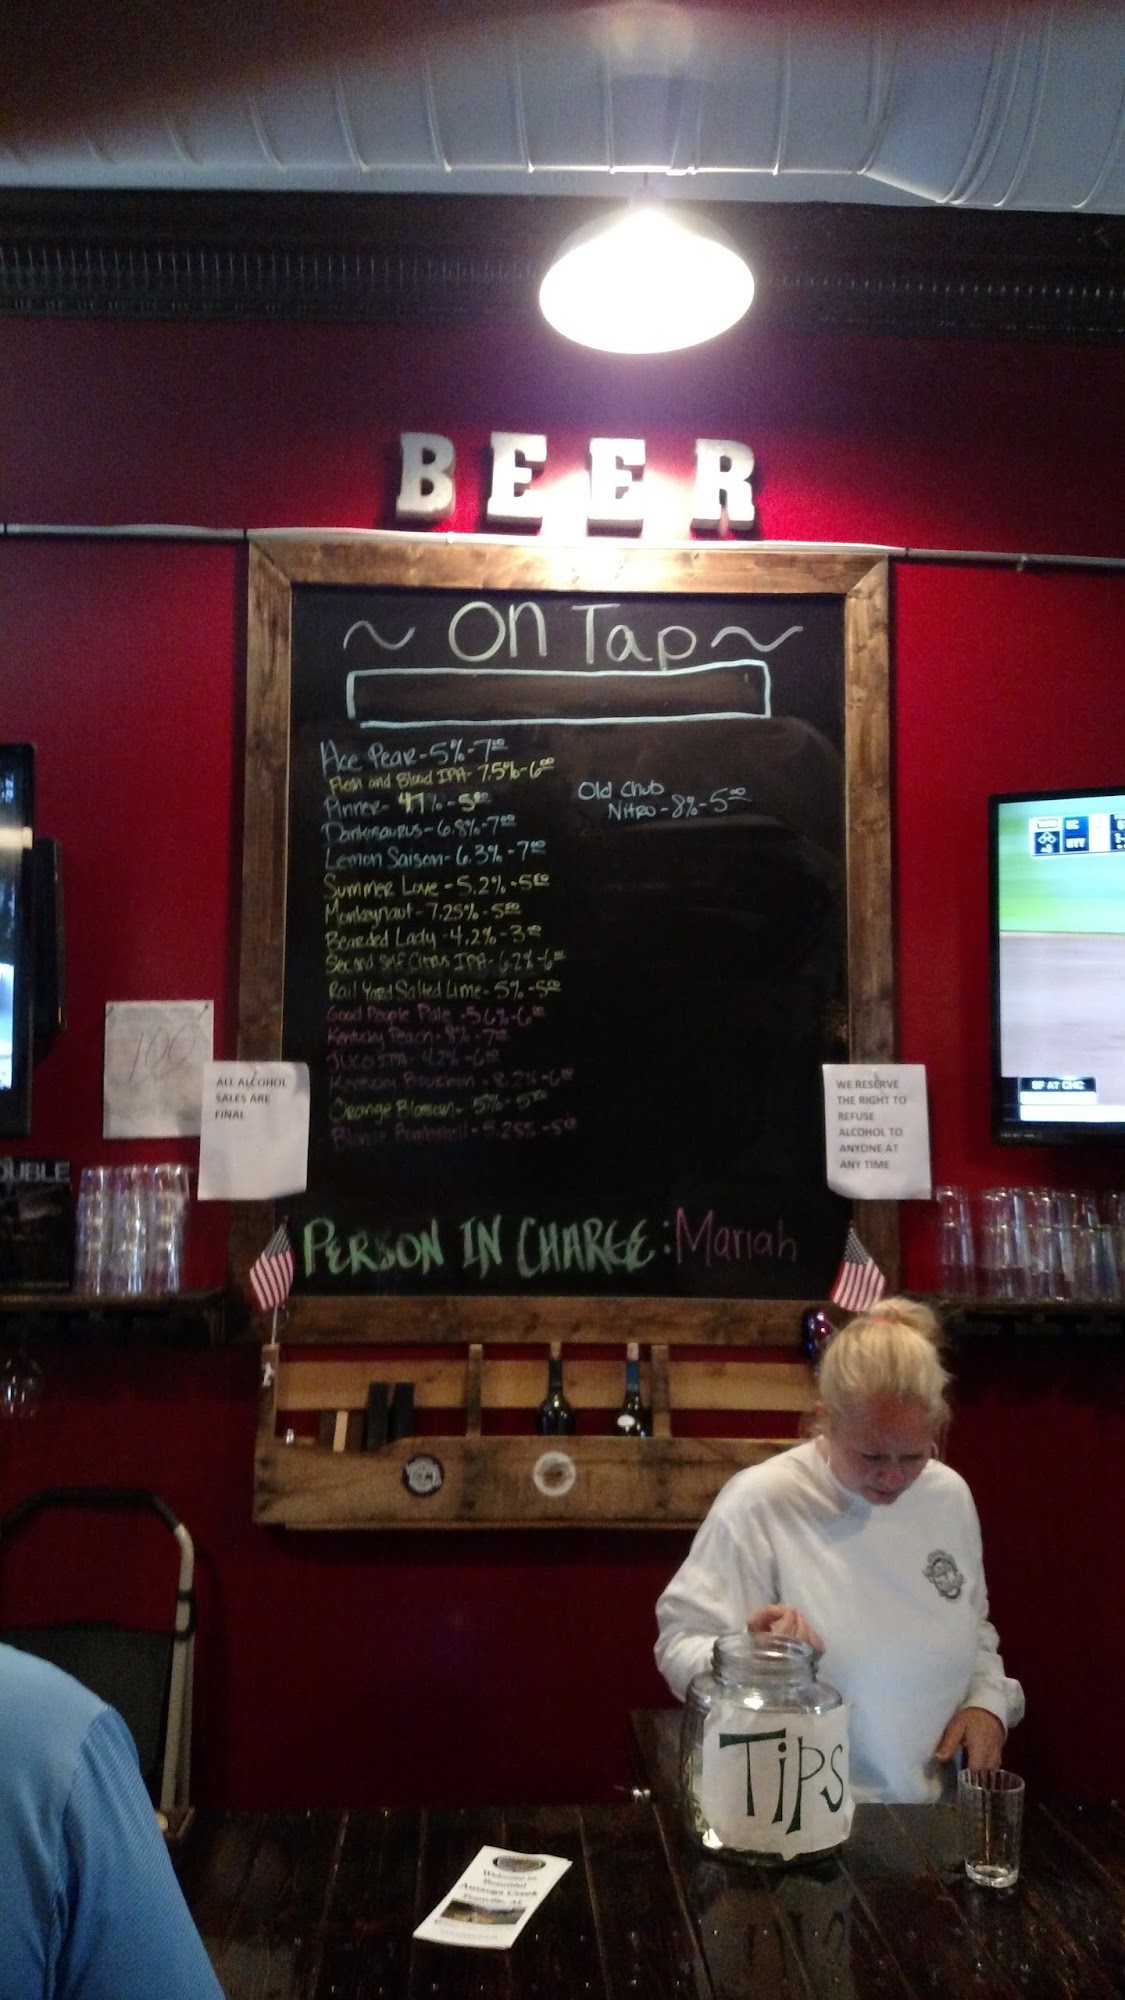 BEER
~ On Tap ~
Ace Pear - 5% - 7.00
Flesh and Blood IPA - 7.5% - 6.00
Pinner - 4.7% - 5.00
Dankosaurus - 6.8% - 7.00
Lemon Saison - 6.3% - 7.00
Summer Love - 5.2% - 5.00
Monkeynaut - 7.25% - 5.00
Bearded Lady - 4.2% - 3.00
Second Self Citrus IPA - 6.2% - 6.00
Rail Yard Salted Lime - 5% - 5.00
Good People Pale - 5.6% - 6.00
Kentucky Peach - 8% - 7.00
IPA - 4.2% - 6.00
Kentucky Bourbon - 8.2% - 6.00
Orange Blossom - 5% - 5.00
Blonde Bombshell - 5.25% - 5.00
Old Chub
Nitro - 8% - 5.00
PERSON IN CHARGE: Mariah
100
ALL ALCOHOL
SALES ARE
FINAL
WE RESERVE
THE RIGHT TO
REFUSE
ALCOHOL TO
ANYONE AT
ANY TIME
OUBLE
KC
NYY
SF AT CHC
Tips
Welcome to
Autauga Creek